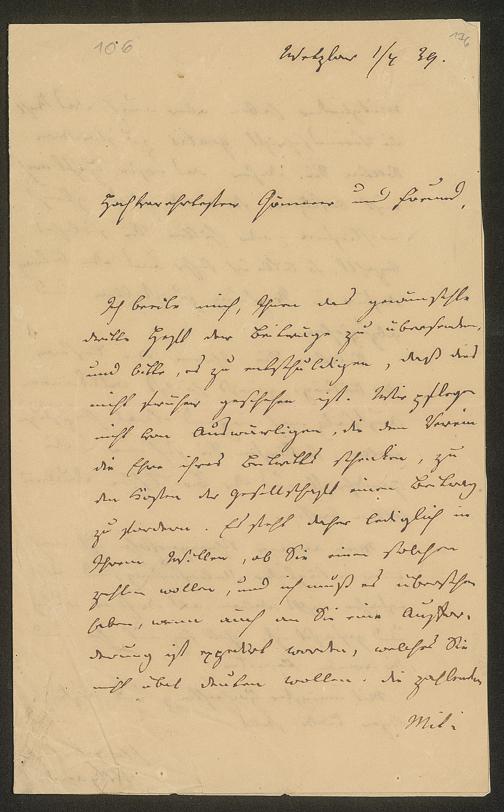 106
136
Wetzlar 1/4 39.
Hochverehrtester Gönner und Freund,
Ich beeile mich, Ihnen das gewünschte
dritte Heft der Beiträge zu übersenden,
und bitte, es zu entschuldigen, daß dies
nicht früher geschehen ist. Wir pflegen
nicht von Auswärtigen, die dem Verein
die Ehre ihres Beitritts schenken, zu
den Kosten der Gesellschaft einen Beitrag
zu fordern. Es steht daher lediglich in
Ihrem Willen, ob Sie einen solchen
zahlen wollen, und ich muß es übersehen
haben, wenn auch an Sie eine Auffor-
derung ist worden, welches Sie
nicht übel deuten wollen. Die zahlenden
Mit-